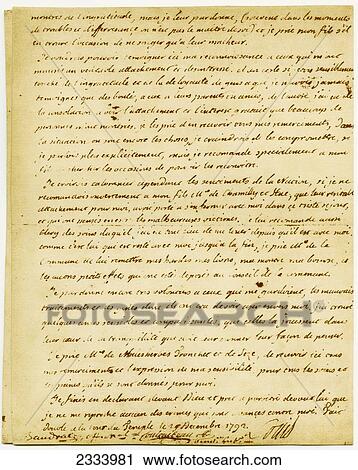 montrés de l'ingratitude, mais je leur pardonne, (souvent dans les moments
de troubles et d'effervescence on n'est pas le maître de soi) et je prie mon fils, s'il
en trouve l'occasion de ne songer qu'à leur malheur.
Je voudrois pouvoir témoigner ici ma reconnoissance à ceux qui m'ont
montré un véritable attachement et désintéressé. d'un coté si j'étois sensiblement
touché de l'ingratitude et de la déloyauté de gens à qui je n'avois jamais
témoigné que des bontés, à eux à leurs parents ou amis, de l'autre j'ai eu de
la consolation à voir l'attachement et l'intérêt gratuit que beaucoup de
personnes m'ont montrés, je les prie d'en recevoir tous mes remerciments. Dans
la situation où sont encore les choses, je craindrois de les compromettre, si
je parlois plus explicitement, mais je recommande spécialement à mon
fils de chercher les occasions de pouvoir les reconnoître.
Je croirois calomnier cependant les sentiments de la Nation, si je ne
recommandois ouvertement à mon fils Mrs de Chamilly et Hue, que leur véritable
attachement pour moi, avoit porté à s'enfermer avec moi dans ce triste séjour,
et qui ont pensé en être les malheureuses victimes, je lui recommande aussi
Clery des soins duquel j'ai eu tout lieu de me louer depuis qu'il est avec moi
comme c'est lui qui est resté avec moi jusqu'à la fin, je prie Mrs de la
Commune de lui remettre mes hardes mes livres, ma montre ma bourse, et
les autres petits effets qui ont été déposés au Conseil de la Commune.
Je pardonne encore très volontiers à ceux qui me gardoient, les mauvais
traitements et les gênes dont ils ont cru devoir user envers moi. J'ai trouvé
quelques âmes sensibles et compatissantes, que celles-là jouissent dans
leur cœur de la tranquillité que doit leur donner leur façon de penser.
Je prie Mrs de Malesherbes Tronchet et de Sèze, de recevoir ici tous
mes remerciments et l'expression de ma sensibilité, pour tous les soins et
les peines qu'ils se sont donnés pour moi.
Je finis en déclarant devant Dieu et prêt à paroître devant lui que
je ne me reproche aucun des crimes qui sont avancés contre moi. Fait
double à la tour du Temple le 25 Décembre 1792.
Louis
FOTOSEARCH
2333981 www.fotosearch.com